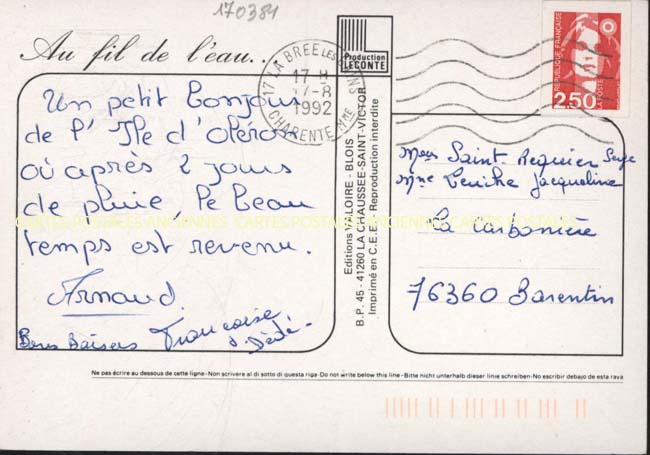 170384
Au fil de l'eau...
Production
LECONTE
17 LA BREE LES BAINS
17-H
17-8
1992
CHARENTE MME
REPUBLIQUE FRANÇAISE
LA POSTE
2,50
Un petit bonjour
de l'Ile d'oléron
où après 2 jours
de pluie, le beau
temps est revenu.
Arnaud.
Bons Baisers Francoise
& Dédé-
Editions VALOIRE - BLOIS
B.P. 45 - 41260 LA CHAUSSEE-SAINT-VICTOR
Imprimé en C.E.E. - Reproduction interdite
Saint-Requier Serge
Mme Jacqueline
La Carbonière
76360 Barentin
CARTES POSTALES ANCIENNES CARTES POSTALES ANCIENNES CARTES POSTALES
Ne pas écrire au dessous de cette ligne-Non scrivere al di sotto di questa riga-Do not write below this line-Bitte nicht unterhalb dieser linie schreiben-No escribir debajo de esta rava